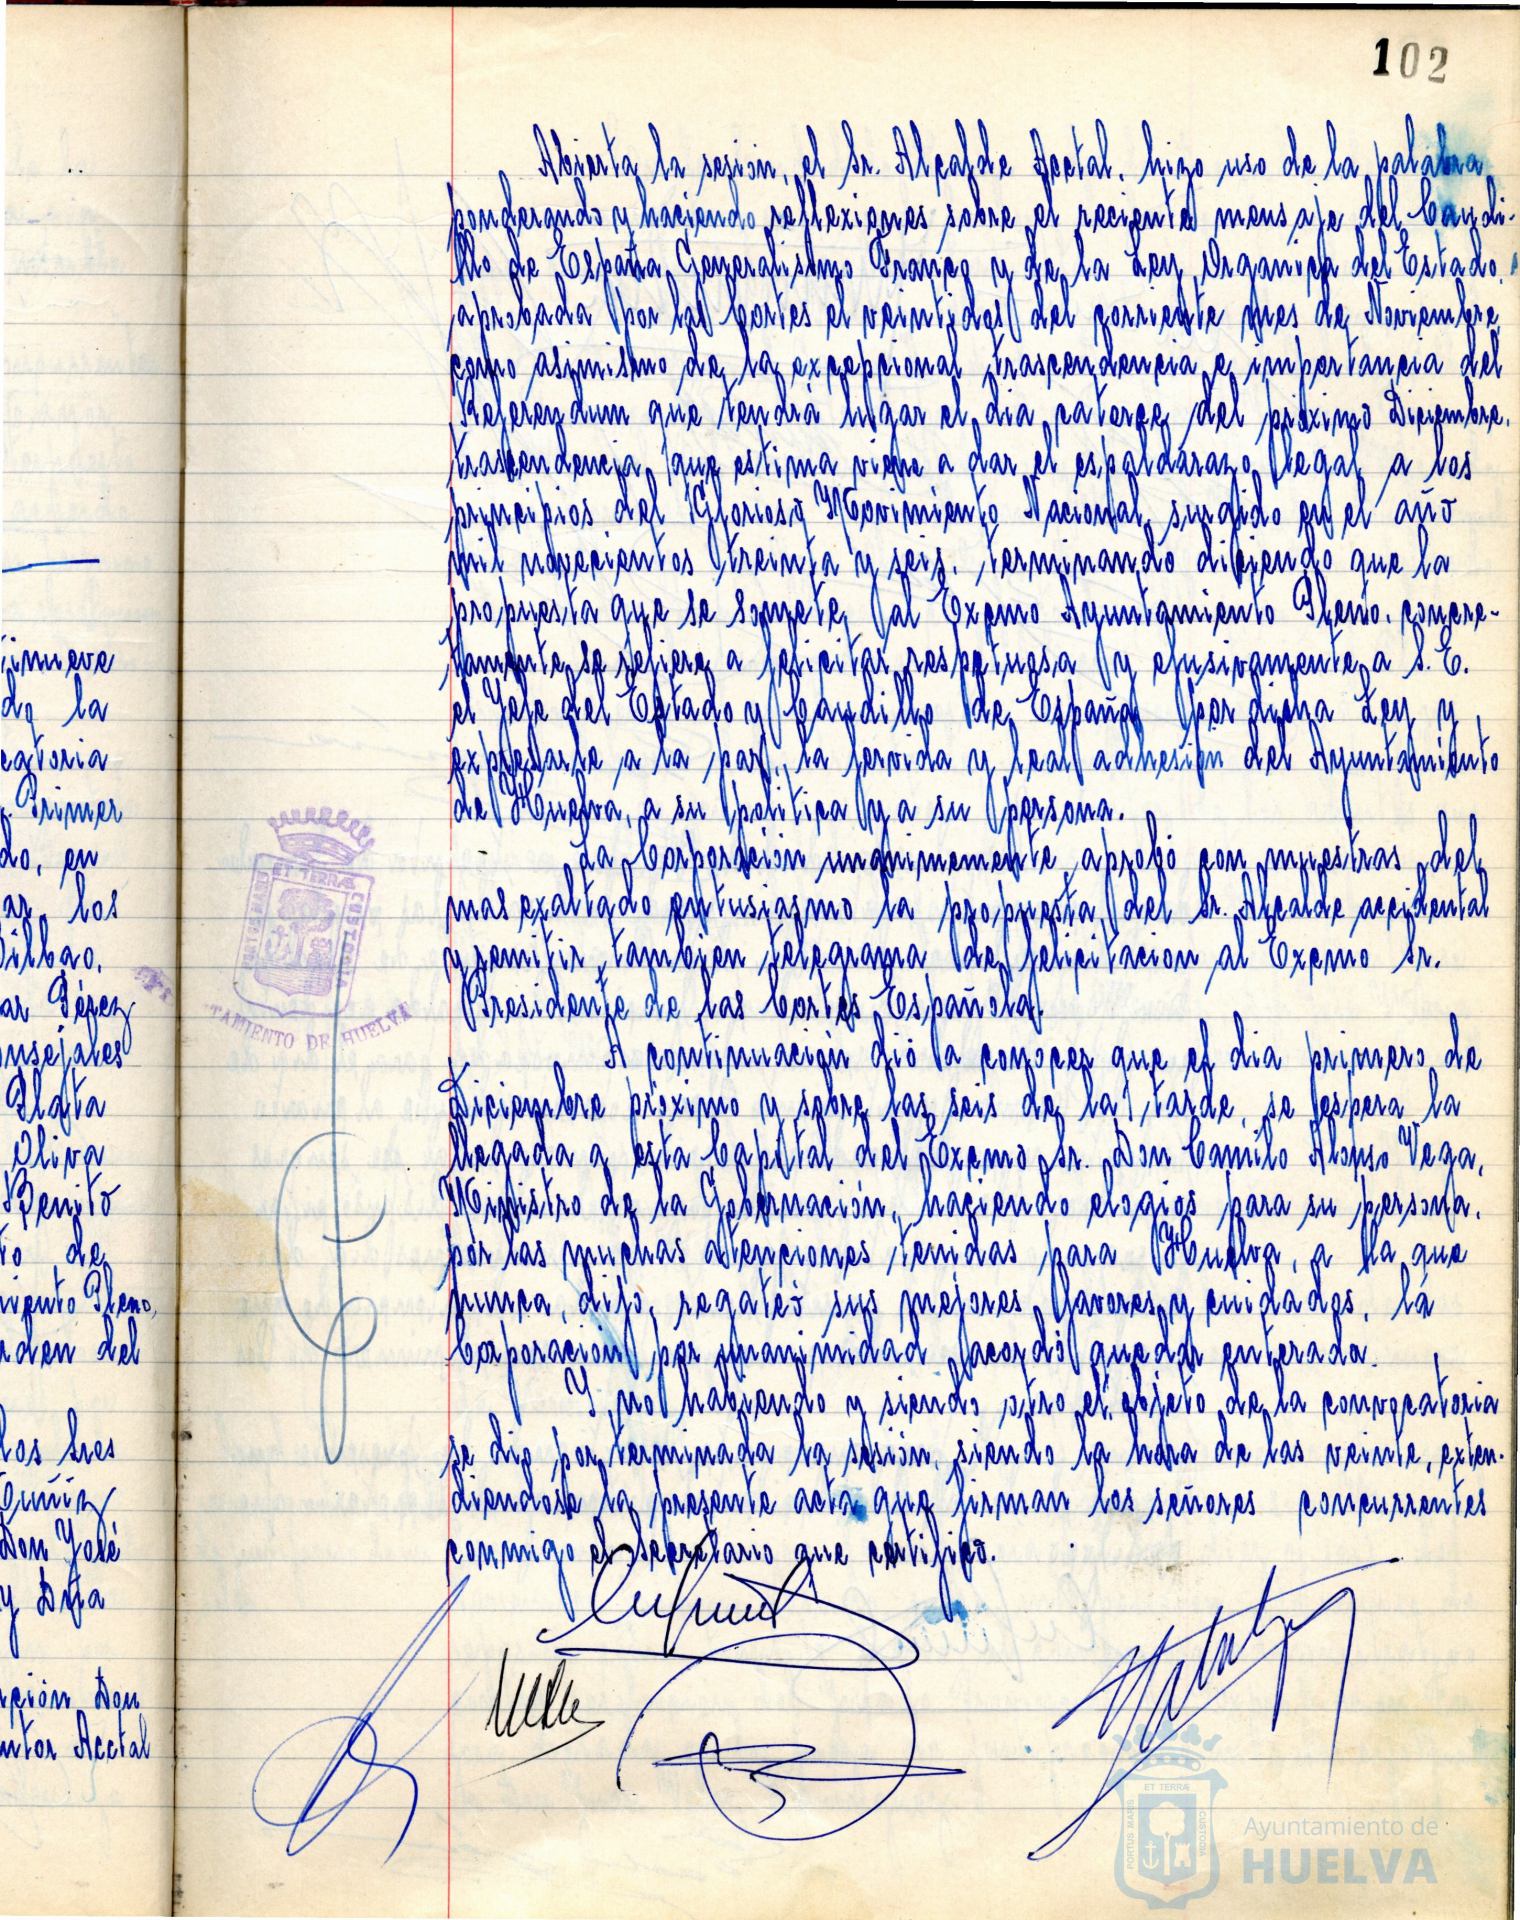 102
Abierta la sesión, el Sr. Alcalde Acctal. hizo uso de la palabra
ponderando y haciendo reflexiones sobre el reciente mensaje del Caudi-
llo de España Generalisimo Franco y de la Ley Organica del Estado,
aprobada por las Cortes el veintidos del corriente mes de Noviembre,
como asimismo de la excepcional trascendencia e importancia del
Referendum que tendrá lugar el dia catorce del próximo Diciembre,
trascendencia que estima viene a dar el espaldarazo legal a los
principios del Glorioso Movimiento Nacional, surgido en el año
mil novecientos treinta y seis, terminando diciendo que la
propuesta que se somete al Excmo Ayuntamiento Pleno, concre-
tamente se refiere a felicitar respetuosa y efusivamente a S. E.
el Jefe del Estado y Caudillo de España por dicha Ley y
expresarle a la par, la fervida y leal adhesión del Ayuntamiento
de Huelva, a su politica y a su persona.
La Corporación unanimemente aprobó con muestras del
mas exaltado entusiasmo la propuesta del Sr. Alcalde accidental
y remitir tambien telegrama de felicitacion al Excmo Sr.
Presidente de las Cortes Española.
A continuación dió a conocer que el dia primero de
Diciembre próximo y sobre las seis de la tarde, se espera la
llegada a esta Capital del Excmo Sr. Don Camilo Alonso Vega,
Ministro de la Gobernación, haciendo elogios para su persona,
por las muchas atenciones tenidas para Huelva, a la que
nunca, dijo, regateó sus mejores favores y cuidados, la
Corporación por unanimidad acordó quedar enterada.
Y no habiendo y siendo otro el objeto de la convocatoria
se dio por terminada la sesión, siendo la hora de las veinte, exten-
diendose la presente acta que firman los señores concurrentes
conmigo el Secretario que certifico.
inueve
la
catoria
Primer
do, en
ar los
Bilbao,
ar Pérez
onsejales
Plata
Oliva
Benito
to de
miento Pleno,
rden del
los tres
Don José
y Dña
pción Don
ntor Acctal
ET TERRÆ
CUSTODIA
TAMIENTO DE HUELVA
ET TERRÆ
PORTUS MARIS
CUSTODIA
Ayuntamiento de
HUELVA